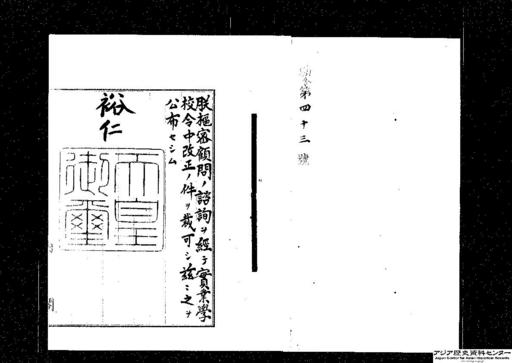 勅令第四十三號
朕樞密顧問ノ諮詢ヲ經テ實業學
校令中改正ノ件ヲ裁可シ茲ニ之ヲ
公布セシム
裕仁
天皇
御璽
アジア歴史資料センター
Japan Center for Asian Historical Records